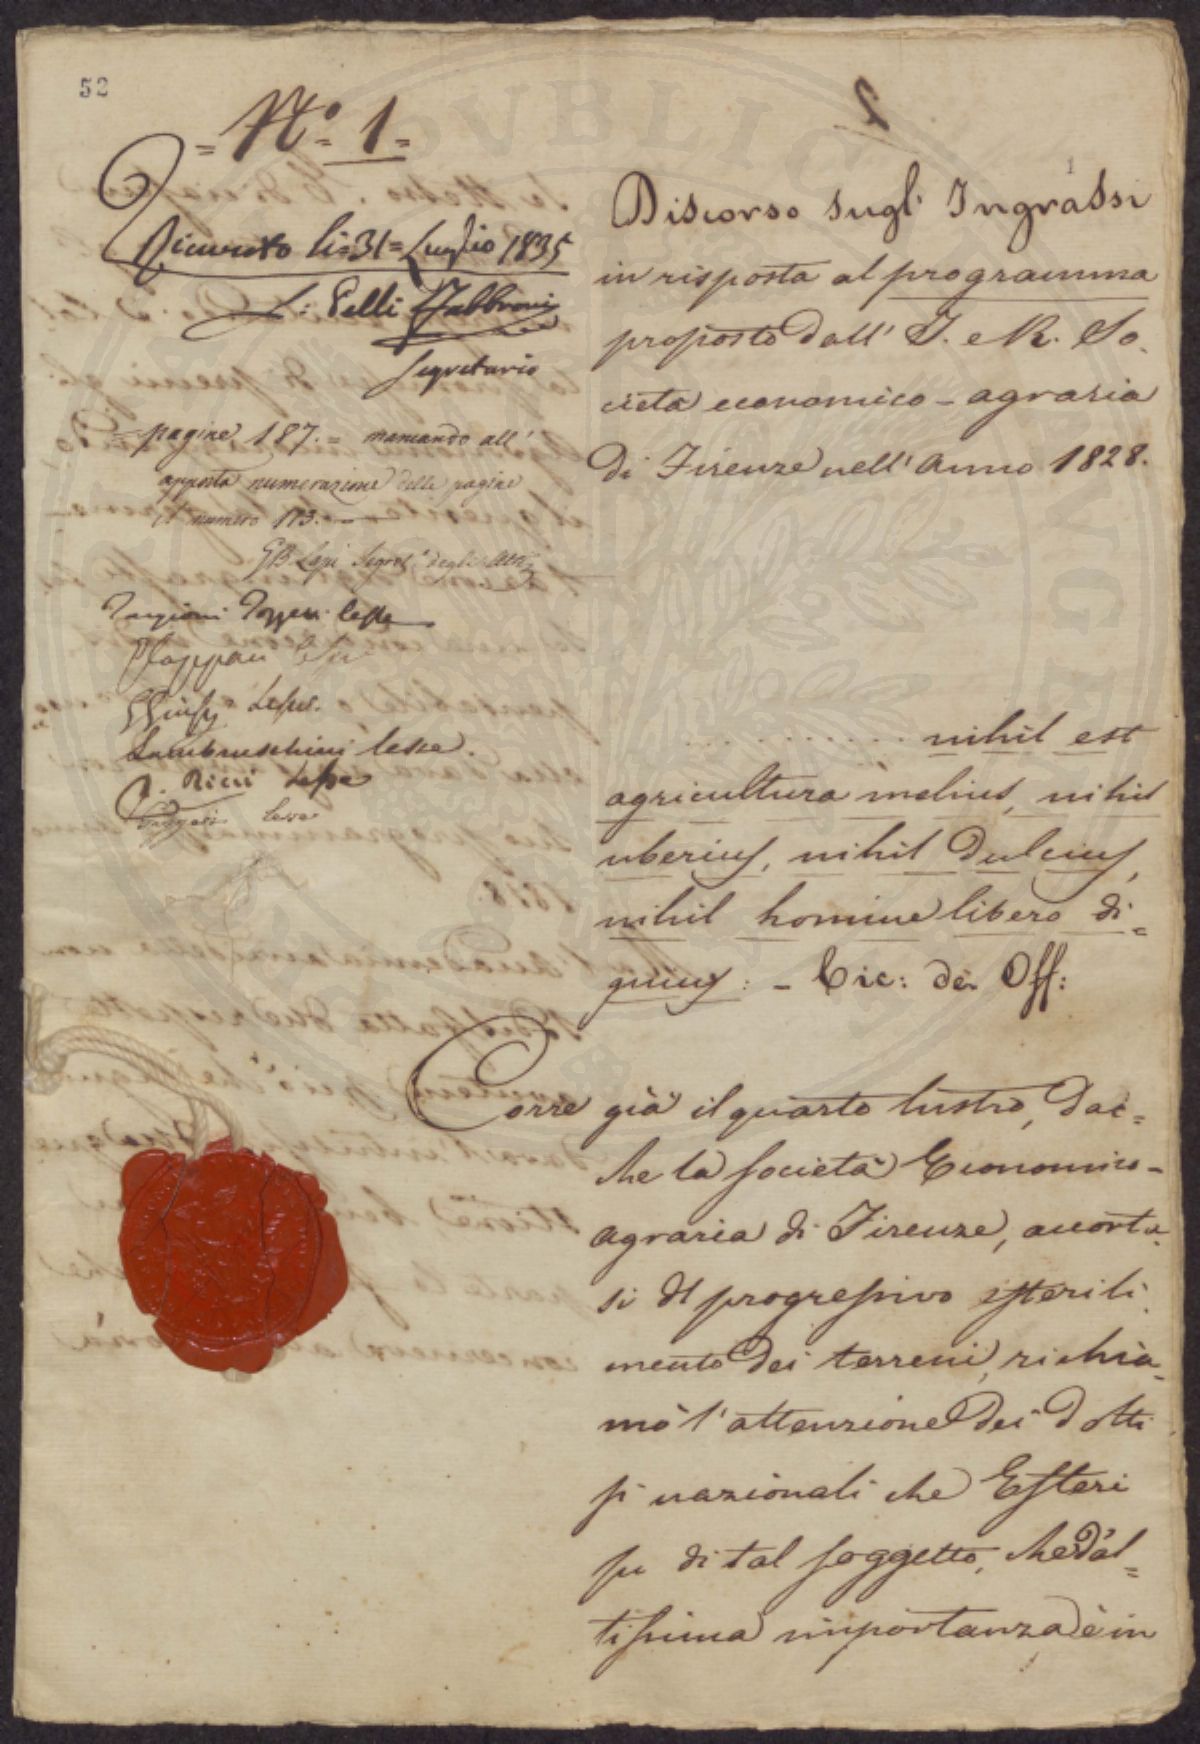 52
= N.o 1 =
Ricevuto li = 31 = Luglio 1835
L: Pelli Fabbroni
Segretario
= pagine 187. = mancando all'
apposta numerazione delle pagine
il numero 173.
GB Lapi Segret.o degli Atti
Targioni Tozzetti lesse
lesse
lesse.
Lambruschini lesse.
Ricci lesse
lesse
1
Discorso sugl' Ingrassi
in risposta al programma
proposto dall' I. e R. So-
cietà economico-agraria
di Firenze nell' anno 1828.
. . . . . . . . . . nihil est
agricultura melius, nihil
uberius, nihil dulcius,
nihil homine libero di=
gnius: - Cic: de Off:
Corre già il quarto lustro, dac=
che la Società Economico-
agraria di Firenze, accorta-
si del progressivo isterili-
mento dei terreni, richia-
mò l'attenzione dei dotti
sì nazionali che Esteri
su di tal soggetto, che d'al=
tissima importanza è in
PVBLIC